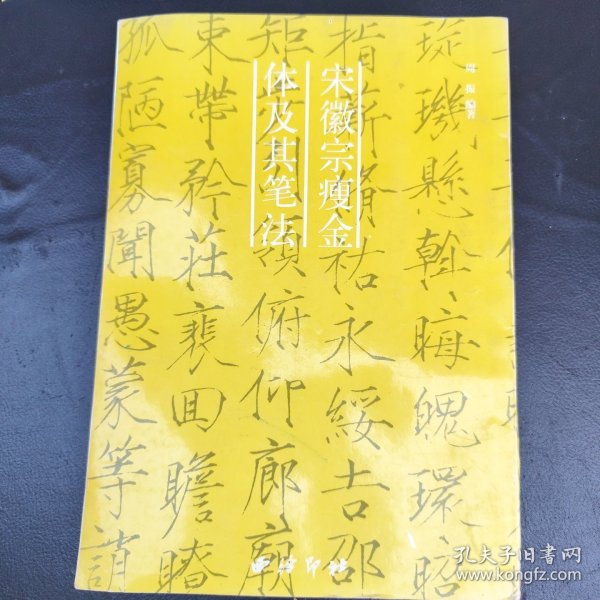 周
编著
宋徽宗瘦金
体及其笔法
璇璣懸斡晦魄環昭
指薪脩祐永綏吉邵
矩步引領俯仰廊廟
束帶矜莊裵回瞻眺
孤陋寡聞愚蒙等誚
西泠印社
孔夫子旧书网
www.kongfz.com